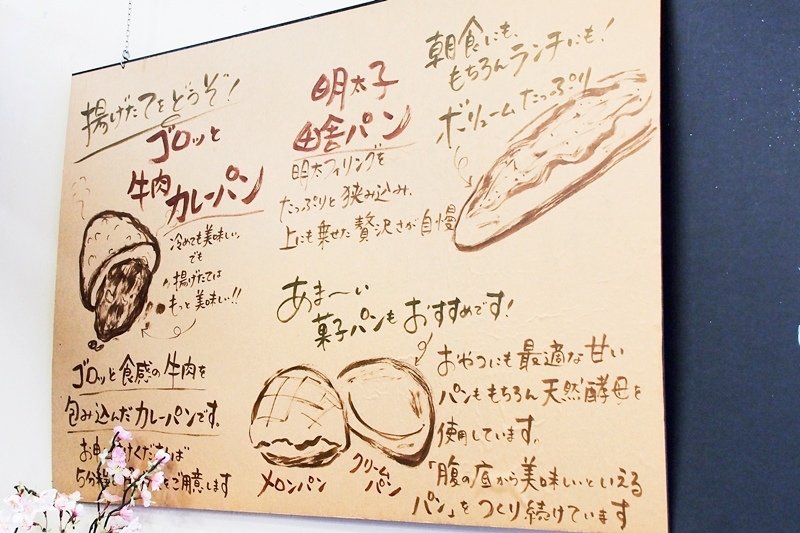 揚げたてをどうぞ!
ゴロッと
牛肉カレーパン
冷めても美味しい。
でも
揚げたては
もっと美味しい!!
ゴロッと食感の牛肉を
包み込んだカレーパンです。
お申し付けくだされば
5分程
とご用意します
明太子
田舎パン
明太フィリングを
たっぷりと挟み込み、
上にも乗せた贅沢さが自慢
朝食にも、
もちろんランチにも!
ボリュームたっぷり
あま〜い
菓子パンもおすすめです!
メロンパン
クリーム
パン
おやつにも最適な甘い
パンももちろん天然酵母を
使用しています。
「腹の底から美味しいといえる
パン」をつくり続けています